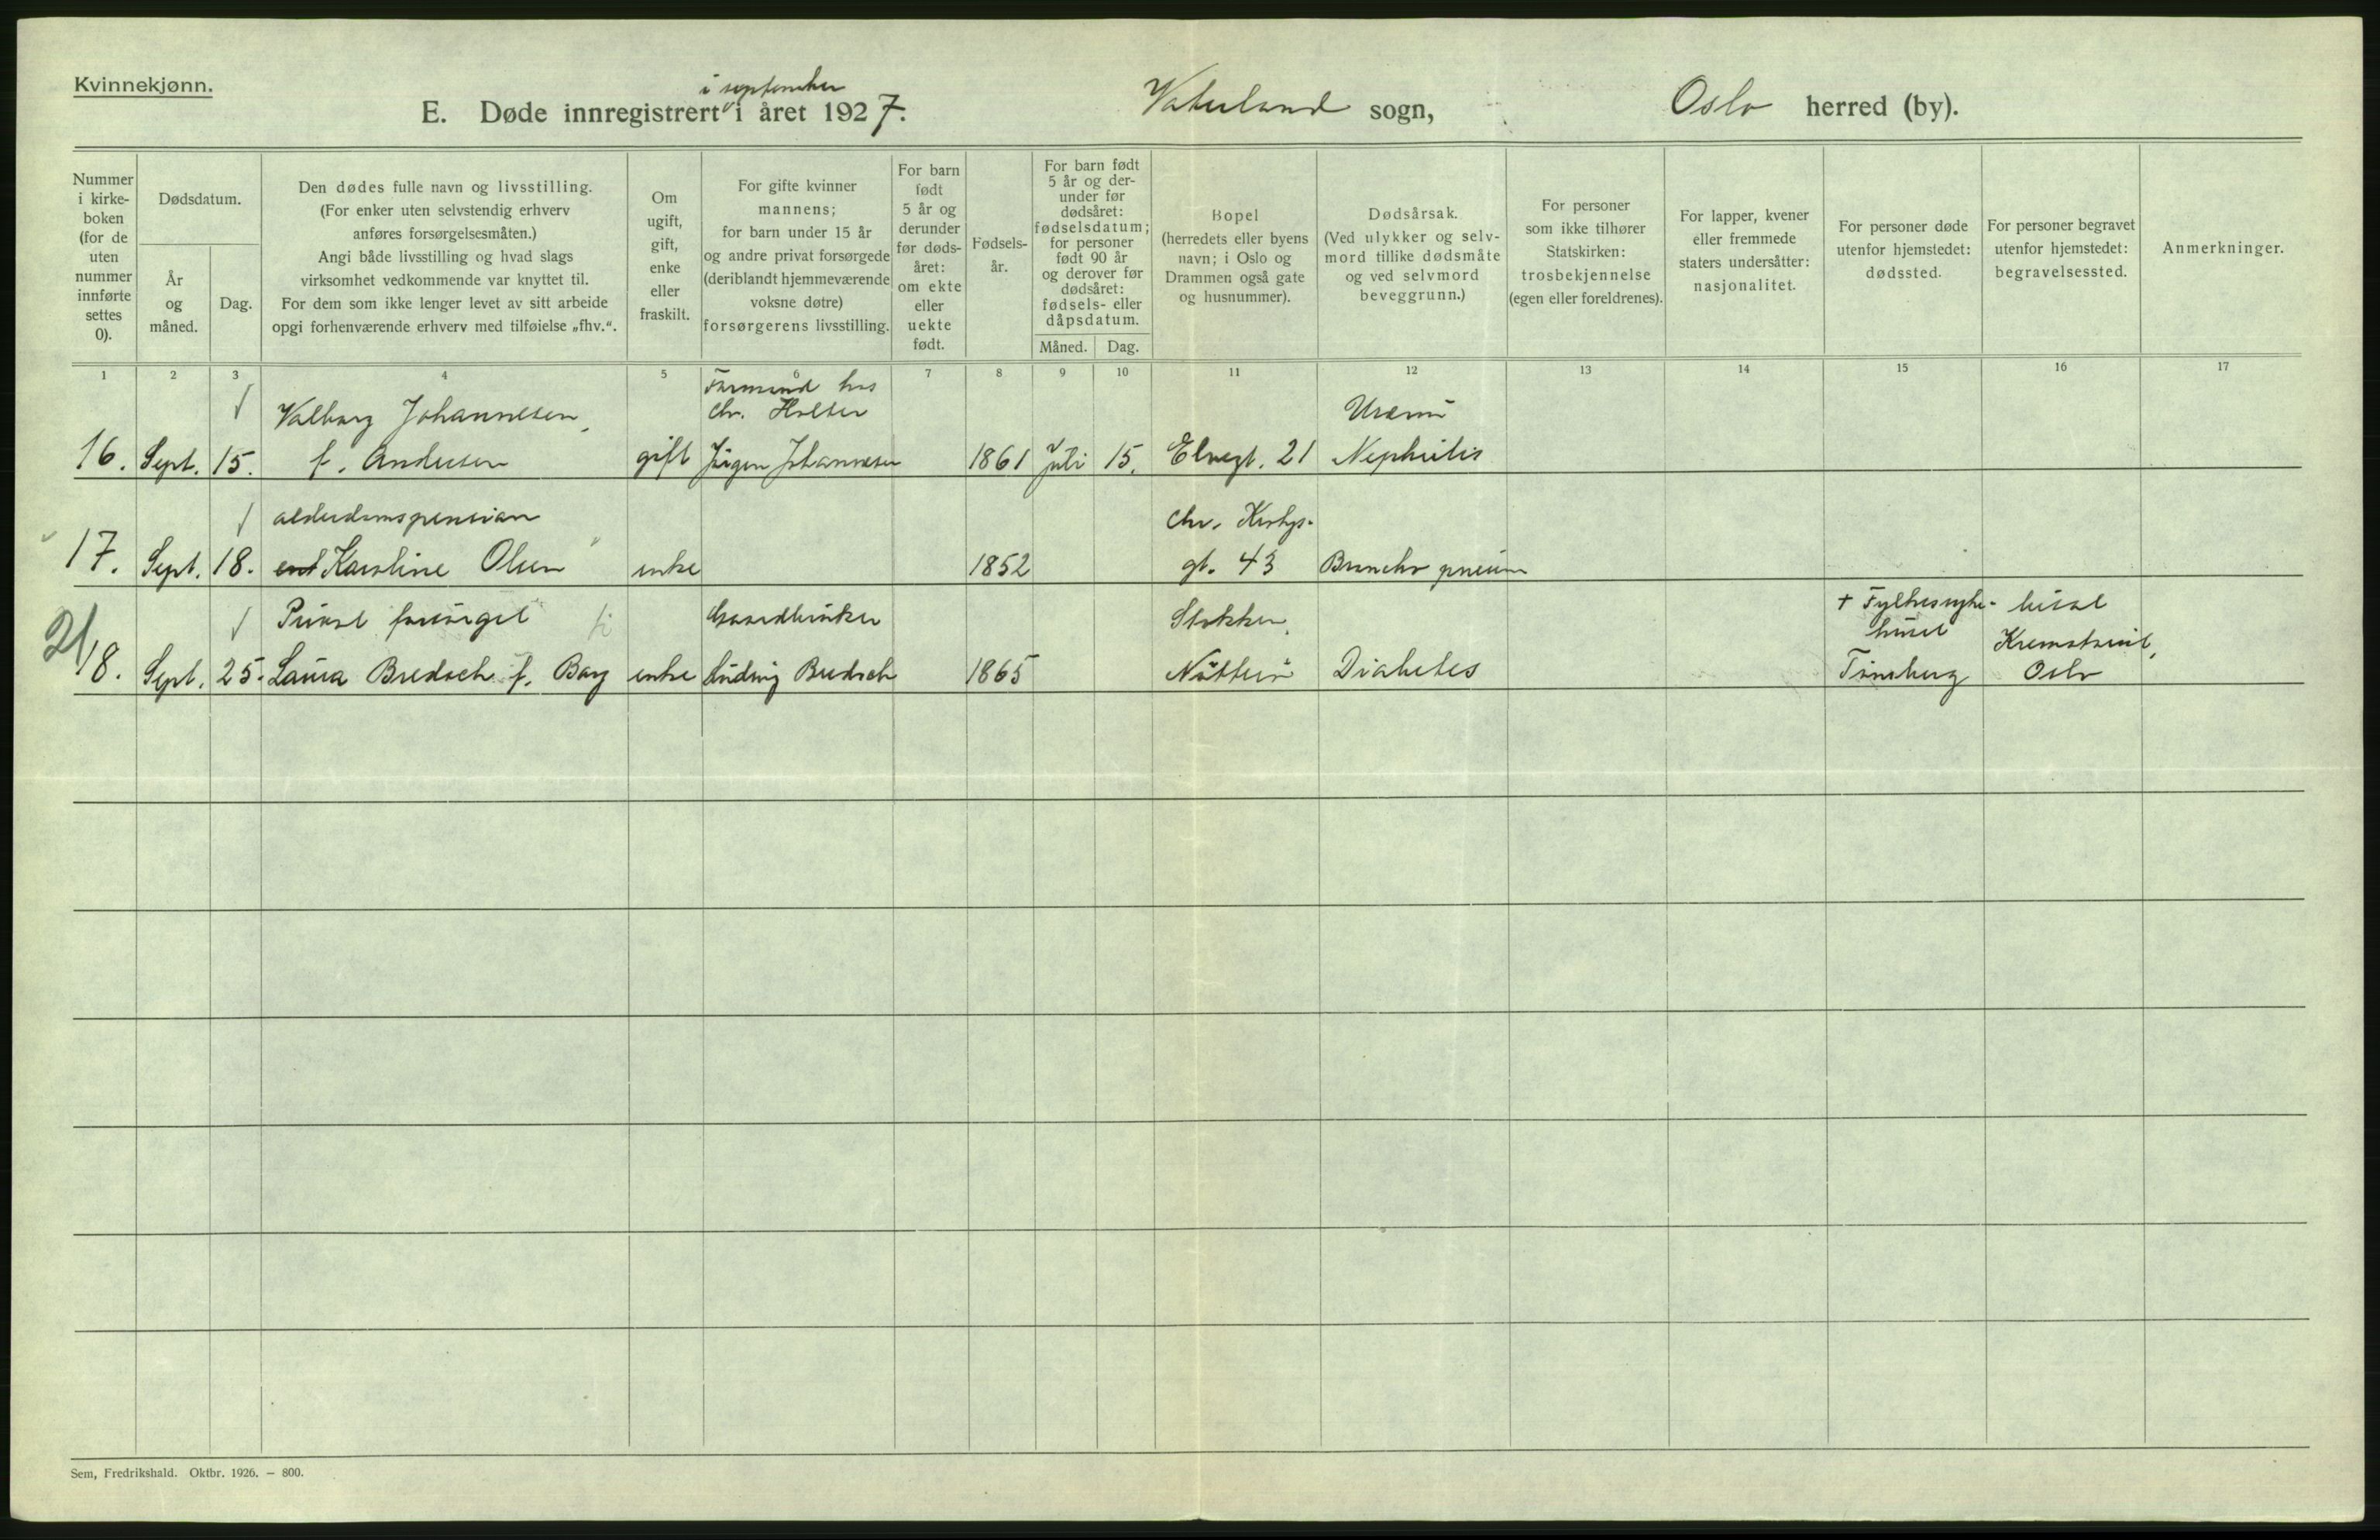 Kvinnekjønn.
i september
E. Døde innregistrert i året 1927. Vaterland sogn, Oslo herred (by).
Nummer i kirke-boken (for de uten nummer innførte settes 0).
Dødsdatum.
År og måned.
Dag.
Den dødes fulle navn og livsstilling.
(For enker uten selvstendig erhverv
anføres forsørgelsesmåten.)
Angi både livsstilling og hvad slags
virksomhet vedkommende var knyttet til.
For dem som ikke lenger levet av sitt arbeide
opgi forhenværende erhverv med tilføielse „fhv.“.
Om ugift, gift, enke eller fraskilt.
For gifte kvinner
mannens;
for barn under 15 år
og andre privat forsørgede
(deriblandt hjemmeværende
voksne døtre)
forsørgerens livsstilling.
For barn født 5 år og derunder før døds-året: om ekte eller uekte født.
Fødsels-år.
For barn født
5 år og der-
under før
dødsåret:
fødselsdatum;
for personer
født 90 år
og derover før
dødsåret:
fødsels- eller
dåpsdatum.
Måned. Dag.
Bopel
(herredets eller byens
navn; i Oslo og
Drammen også gate
og husnummer).
Dødsårsak.
(Ved ulykker og selv-
mord tillike dødsmåte
og ved selvmord
beveggrunn.)
For personer
som ikke tilhører
Statskirken:
trosbekjennelse
(egen eller foreldrenes).
For lapper, kvener
eller fremmede
staters undersåtter:
nasjonalitet.
For personer døde
utenfor hjemstedet:
dødssted.
For personer begravet
utenfor hjemstedet:
begravelsessted.
Anmerkninger.
1 2 3 4 5 6 7 8 9 10 11 12 13 14 15 16 17
Formand hos
Valborg Johannesen, Chr. Holter Uremi
16. Sept. 15. f. Andersen gift Jørgen Johannesen 1861 Juli 15. Elvegt. 21 Nephritis
alderdomspension Chr. Krohgs-
17. Sept. 18. enk Karoline Olsen enke 1852 gt. 43 Broncho pneum
Privat forsørget Gaardbruker Stokken, + Fylkessyke- bisat
huset Krematoriet,
21
18. Sept. 25. Laura Bredoch f. Borg enke Ludvig Bredoch 1865 Nøtterø Diabetes Tønsberg Oslo
Sem, Fredrikshald. Oktbr. 1926. — 800.